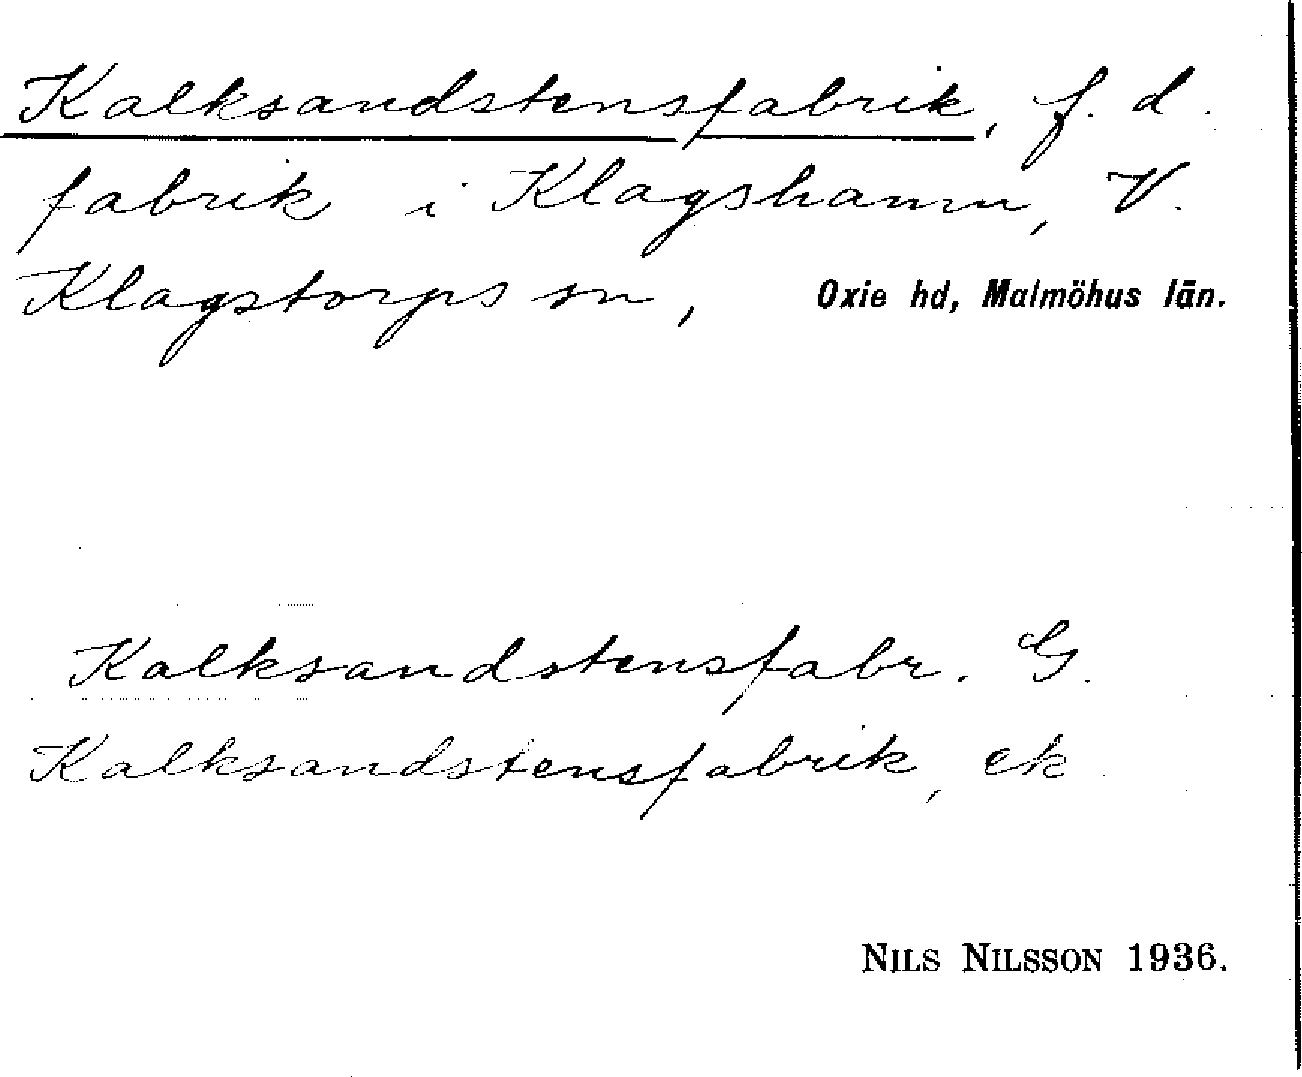 Kalksandstensfabrik, f. d.
fabrik i Klagshamn, V.
Klagstorps sn, Oxie hd, Malmöhus län.
Kalksandstensfabr. G.
Kalksandstensfabrik, ek
NILS NILSSON 1936.